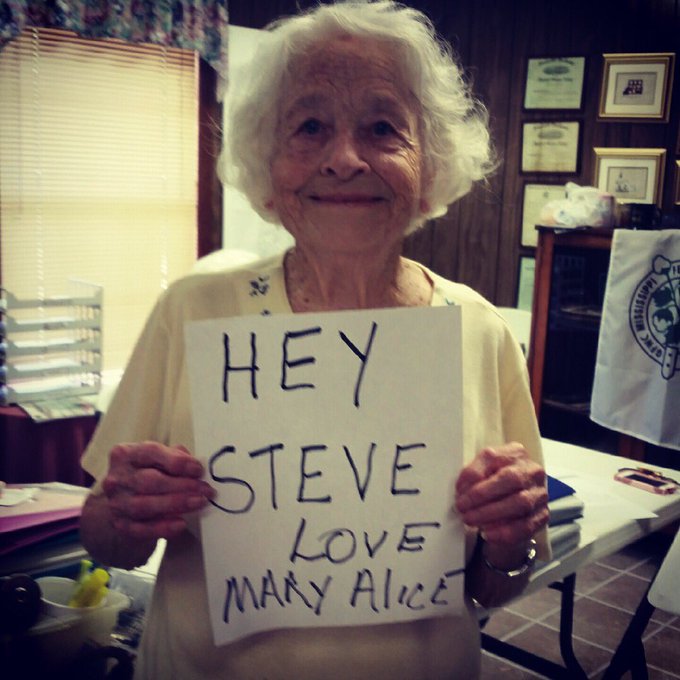 HEY
STEVE
LOVE
MARY ALICE
MISSISSIPPI